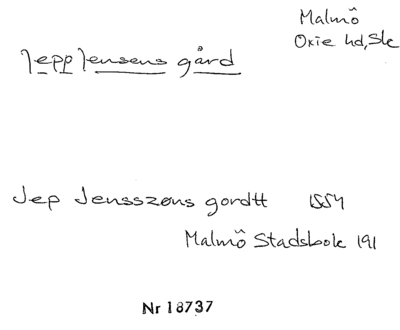 Malmö
Oxie hd, Sk
Jepp Jensens gård
Jep Jensszøns gordtt 1554
Malmö Stadsbok 191
Nr 18737